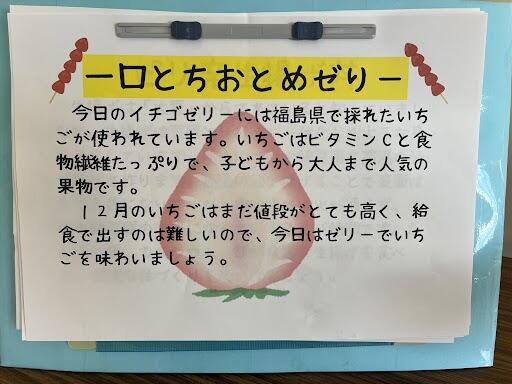 一口とちおとめゼリー
今日のイチゴゼリーには福島県で採れたいち
ごが使われています。いちごはビタミンCと食
物繊維たっぷりで、子どもから大人まで人気の
果物です。
12月のいちごはまだ値段がとても高く、給
食で出すのは難しいので、今日はゼリーでいち
ごを味わいましょう。